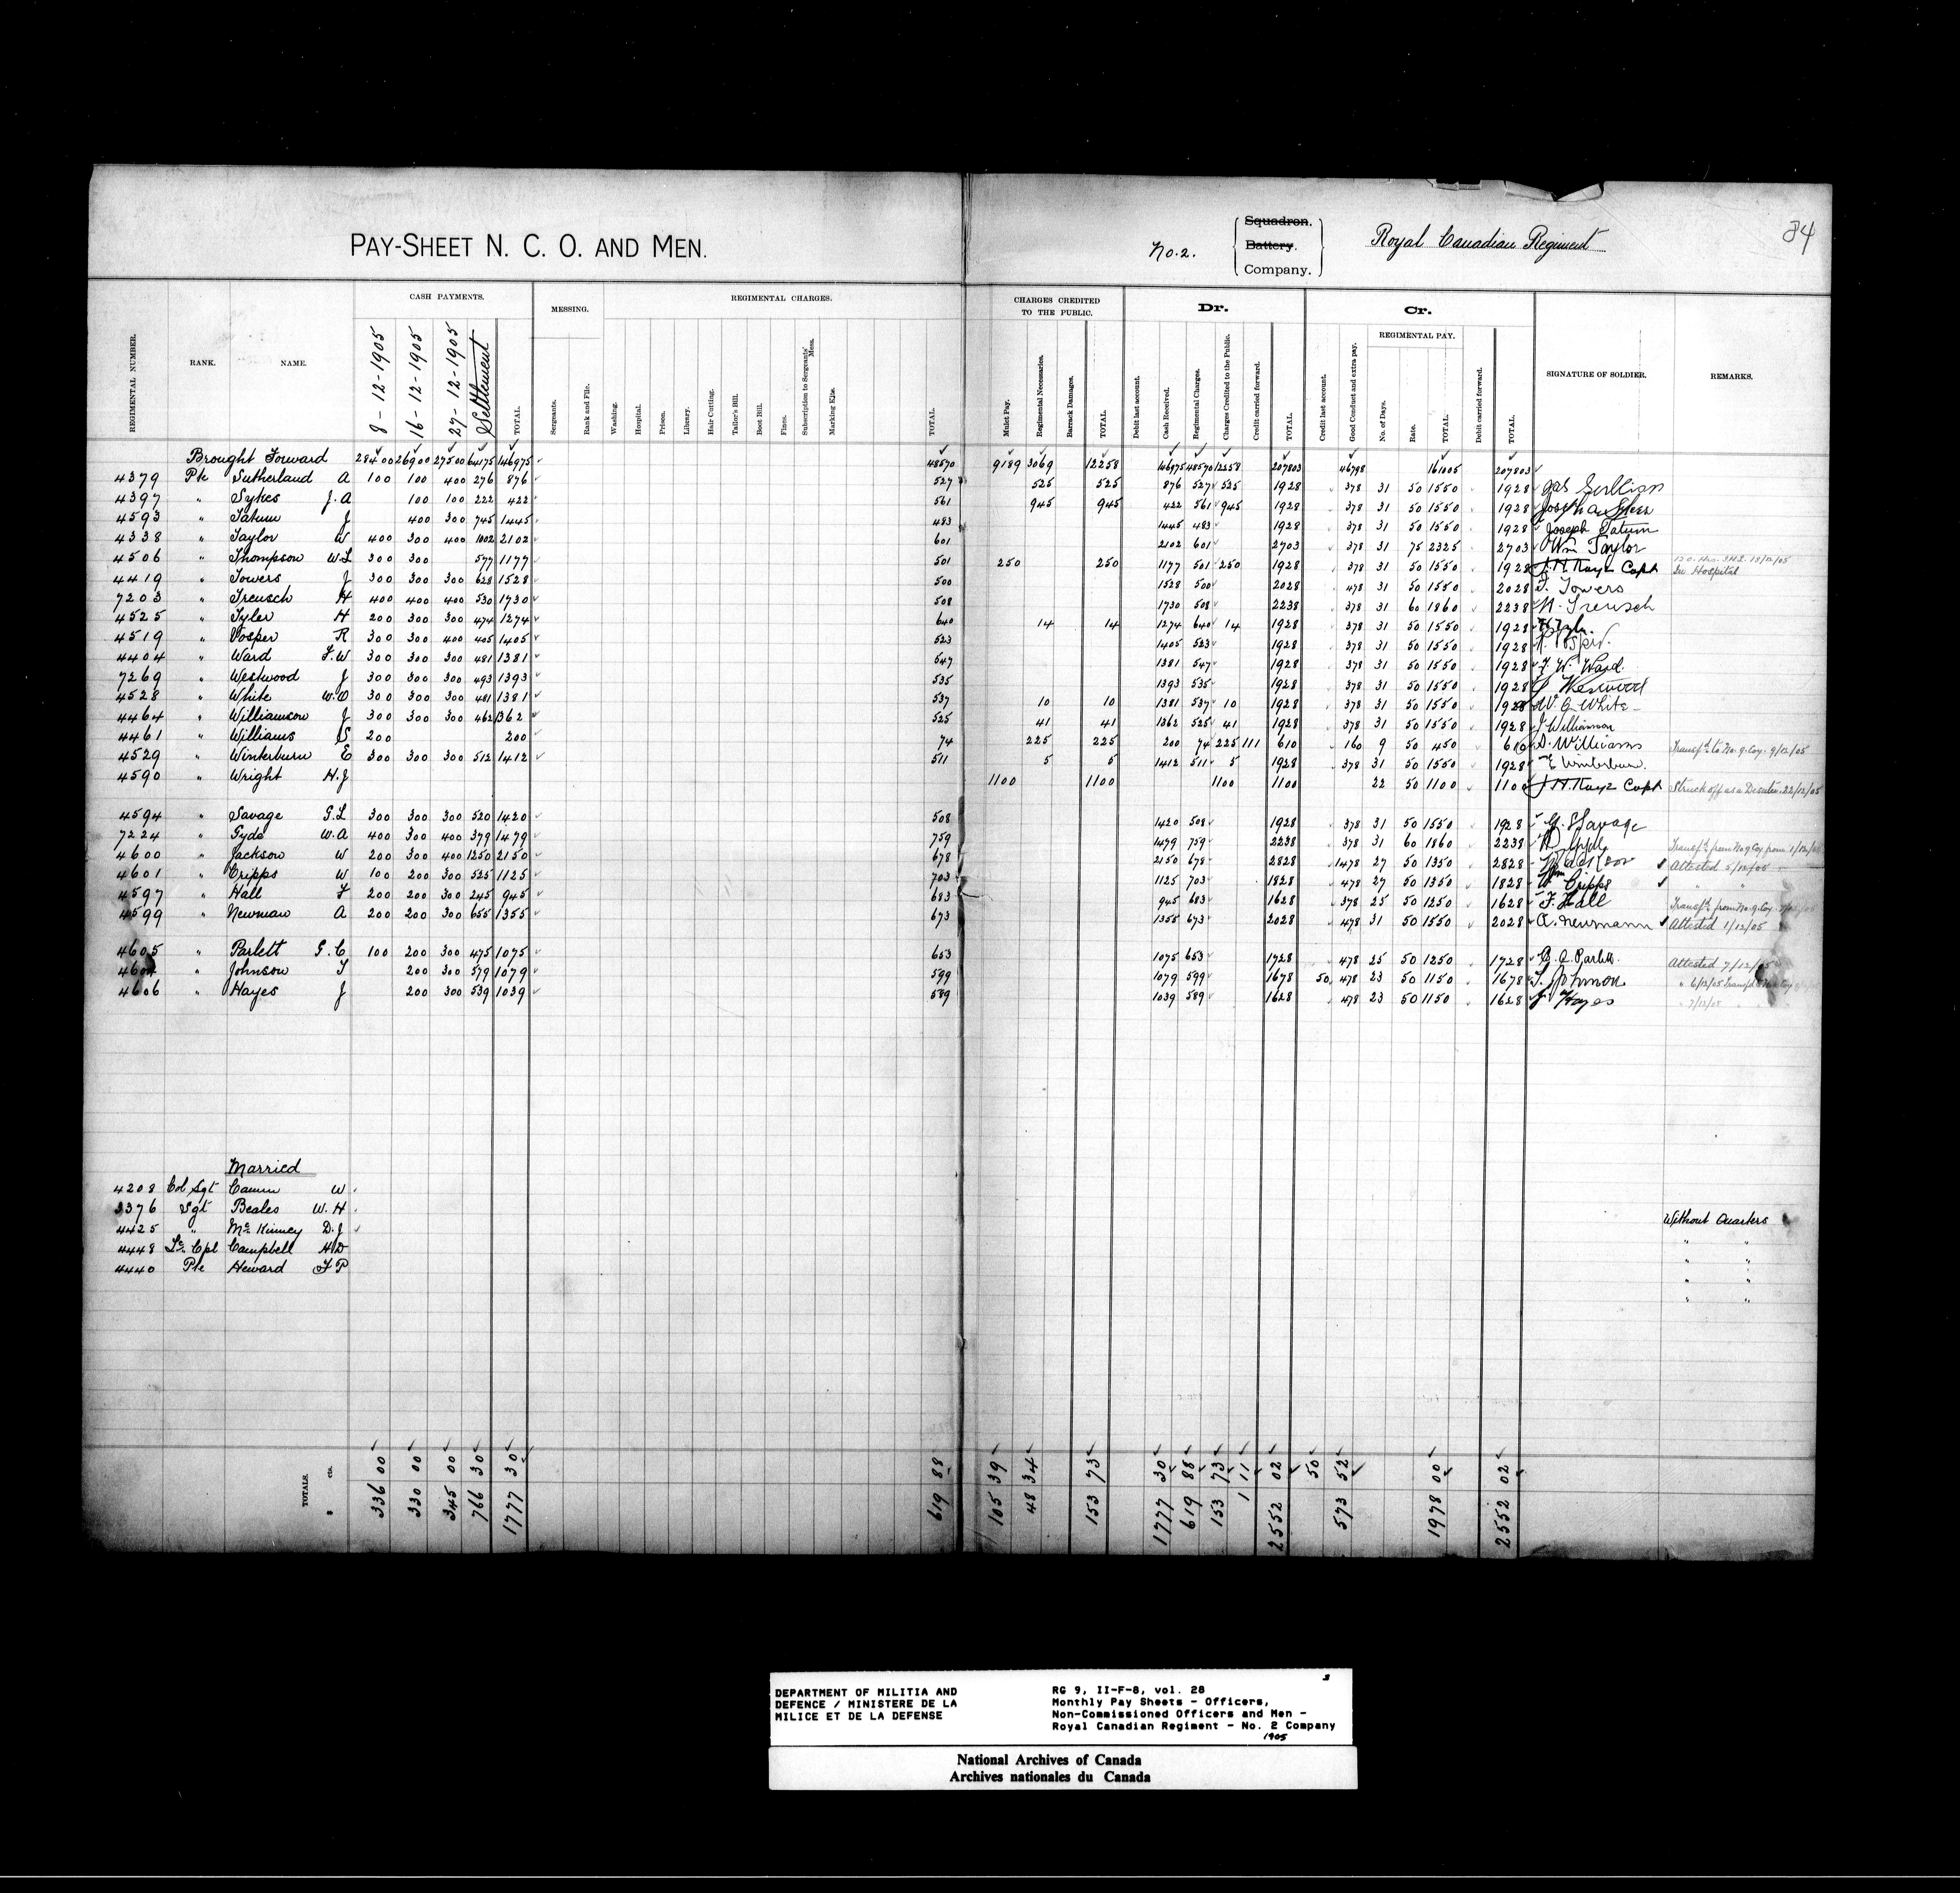 PAY-SHEET N. C. O. AND MEN.
No. 2. Squadron. Battery. Company. Royal Canadian Regiment 34
REGIMENTAL NUMBER. RANK. NAME. CASH PAYMENTS. MESSING. REGIMENTAL CHARGES. CHARGES CREDITED TO THE PUBLIC. Dr. Cr. SIGNATURE OF SOLDIER. REMARKS.
REGIMENTAL PAY.
8-12-1905 16-12-1905 27-12-1905 Settlement TOTAL. Sergeants. Rank and File. Washing. Hospital. Prison. Library. Hair Cutting. Tailor's Bill. Boot Bill. Fines. Subscription to Sergeants' Mess. Marking Kits. TOTAL. Mulct Pay. Regimental Necessaries. Barrack Damages. TOTAL. Debit last account. Cash Received. Regimental Charges. Charges Credited to the Public. Credit carried forward. TOTAL. Credit last account. Good Conduct and extra pay. No. of Days. Rate. TOTAL. Debit carried forward. TOTAL.
Brought Forward 28400 26900 27500 64175 146975 48570 9189 3069 12258 146975 48570 12258 207803 46798 161005 207803
4379 Pte Sutherland A 100 100 400 276 876 527 525 525 876 527 525 1928 378 31 50 1550 1928
4397 " Sykes J.A 100 100 222 422 561 945 945 422 561 945 1928 378 31 50 1550 1928
4593 " Tatum J 400 300 745 1445 483 1445 483 1928 378 31 50 1550 1928 Joseph Tatum
4338 " Taylor W 400 300 400 1002 2102 601 2102 601 2703 378 31 75 2325 2703 Wm Taylor
4506 " Thompson W.L 300 300 577 1177 501 250 250 1177 501 250 1928 378 31 50 1550 1928 J.H. Kaye Capt In Hospital
4419 " Towers J 300 300 300 628 1528 500 1528 500 2028 478 31 50 1550 2028 J. Towers
7203 " Treusch H 400 400 400 530 1730 508 1730 508 2238 378 31 60 1860 2238 H. Treusch
4525 " Tyler H 200 300 300 474 1274 640 14 14 1274 640 14 1928 378 31 50 1550 1928
4519 " Vosper R 300 300 400 405 1405 523 1405 523 1928 378 31 50 1550 1928
4404 " Ward F.W 300 300 300 481 1381 547 1381 547 1928 378 31 50 1550 1928 F. W. Ward
7269 " Westwood J 300 300 300 493 1393 535 1393 535 1928 378 31 50 1550 1928 J Westwood
4528 " White W.O 300 300 300 481 1381 537 10 10 1381 537 10 1928 378 31 50 1550 1928 White
4464 " Williamson J 300 300 300 462 1362 525 41 41 1362 525 41 1928 378 31 50 1550 1928 J Williamson
4461 " Williams S 200 200 74 225 225 200 74 225 111 610 160 9 50 450 610 S. Williams Transf'd to No. 9. Coy. 9/12/05
4529 " Winterburn E 300 300 300 512 1412 511 5 5 1412 511 5 1928 378 31 50 1550 1928 E Winterburn.
4590 " Wright H.J 1100 1100 1100 1100 22 50 1100 1100 J.H. Kaye Capt Struck off as a Deserter. 22/12/05
4594 " Savage G.L 300 300 300 520 1420 508 1420 508 1928 378 31 50 1550 1928 G. L Savage
7224 " Gyde W.A 400 300 400 379 1479 759 1479 759 2238 378 31 60 1860 2238 Transf'd from No 9 Coy from 1/12/05
4600 " Jackson W 200 300 400 1250 2150 678 2150 678 2828 1478 27 50 1350 2828 W Jackson Attested 5/12/05
4601 " Cripps W 100 200 300 525 1125 703 1125 703 1828 478 27 50 1350 1828 Wm Cripps " "
4597 " Hall F 200 200 300 245 945 683 945 683 1628 378 25 50 1250 1628 F. Hall Transf'd from No. 9. Coy.
4599 " Newman A 200 200 300 655 1355 673 1355 673 2028 478 31 50 1550 2028 A. Newmann Attested 1/12/05
4605 " Parlett G.C 100 200 300 475 1075 653 1075 653 1728 478 25 50 1250 1728 G. C. Parlett Attested 7/12/05
4604 " Johnson T 200 300 579 1079 599 1079 599 1678 50 478 23 50 1150 1678 T. Johnson " 6/12/05
4606 " Hayes J 200 300 539 1039 589 1039 589 1628 478 23 50 1150 1628 J. Hayes " 7/12/05
Married
4208 Col Sgt Camm W
3376 Sgt Beales W.H
4425 " Mc Kinney D.J Without Quarters
4448 Lc. Cpl Campbell H.D " "
4440 Pte Heward F P " "
" "
TOTALS. $ cts. 336 00 330 00 345 00 766 30 1777 30 619 88 105 39 48 34 153 73 1777 30 619 88 153 73 1 11 2552 02 50 573 52 1978 00 2552 02
DEPARTMENT OF MILITIA AND
DEFENCE / MINISTERE DE LA
MILICE ET DE LA DEFENSE
RG 9, II-F-8, vol. 28
Monthly Pay Sheets - Officers,
Non-Commissioned Officers and Men -
Royal Canadian Regiment - No. 2 Company
1905
National Archives of Canada
Archives nationales du Canada